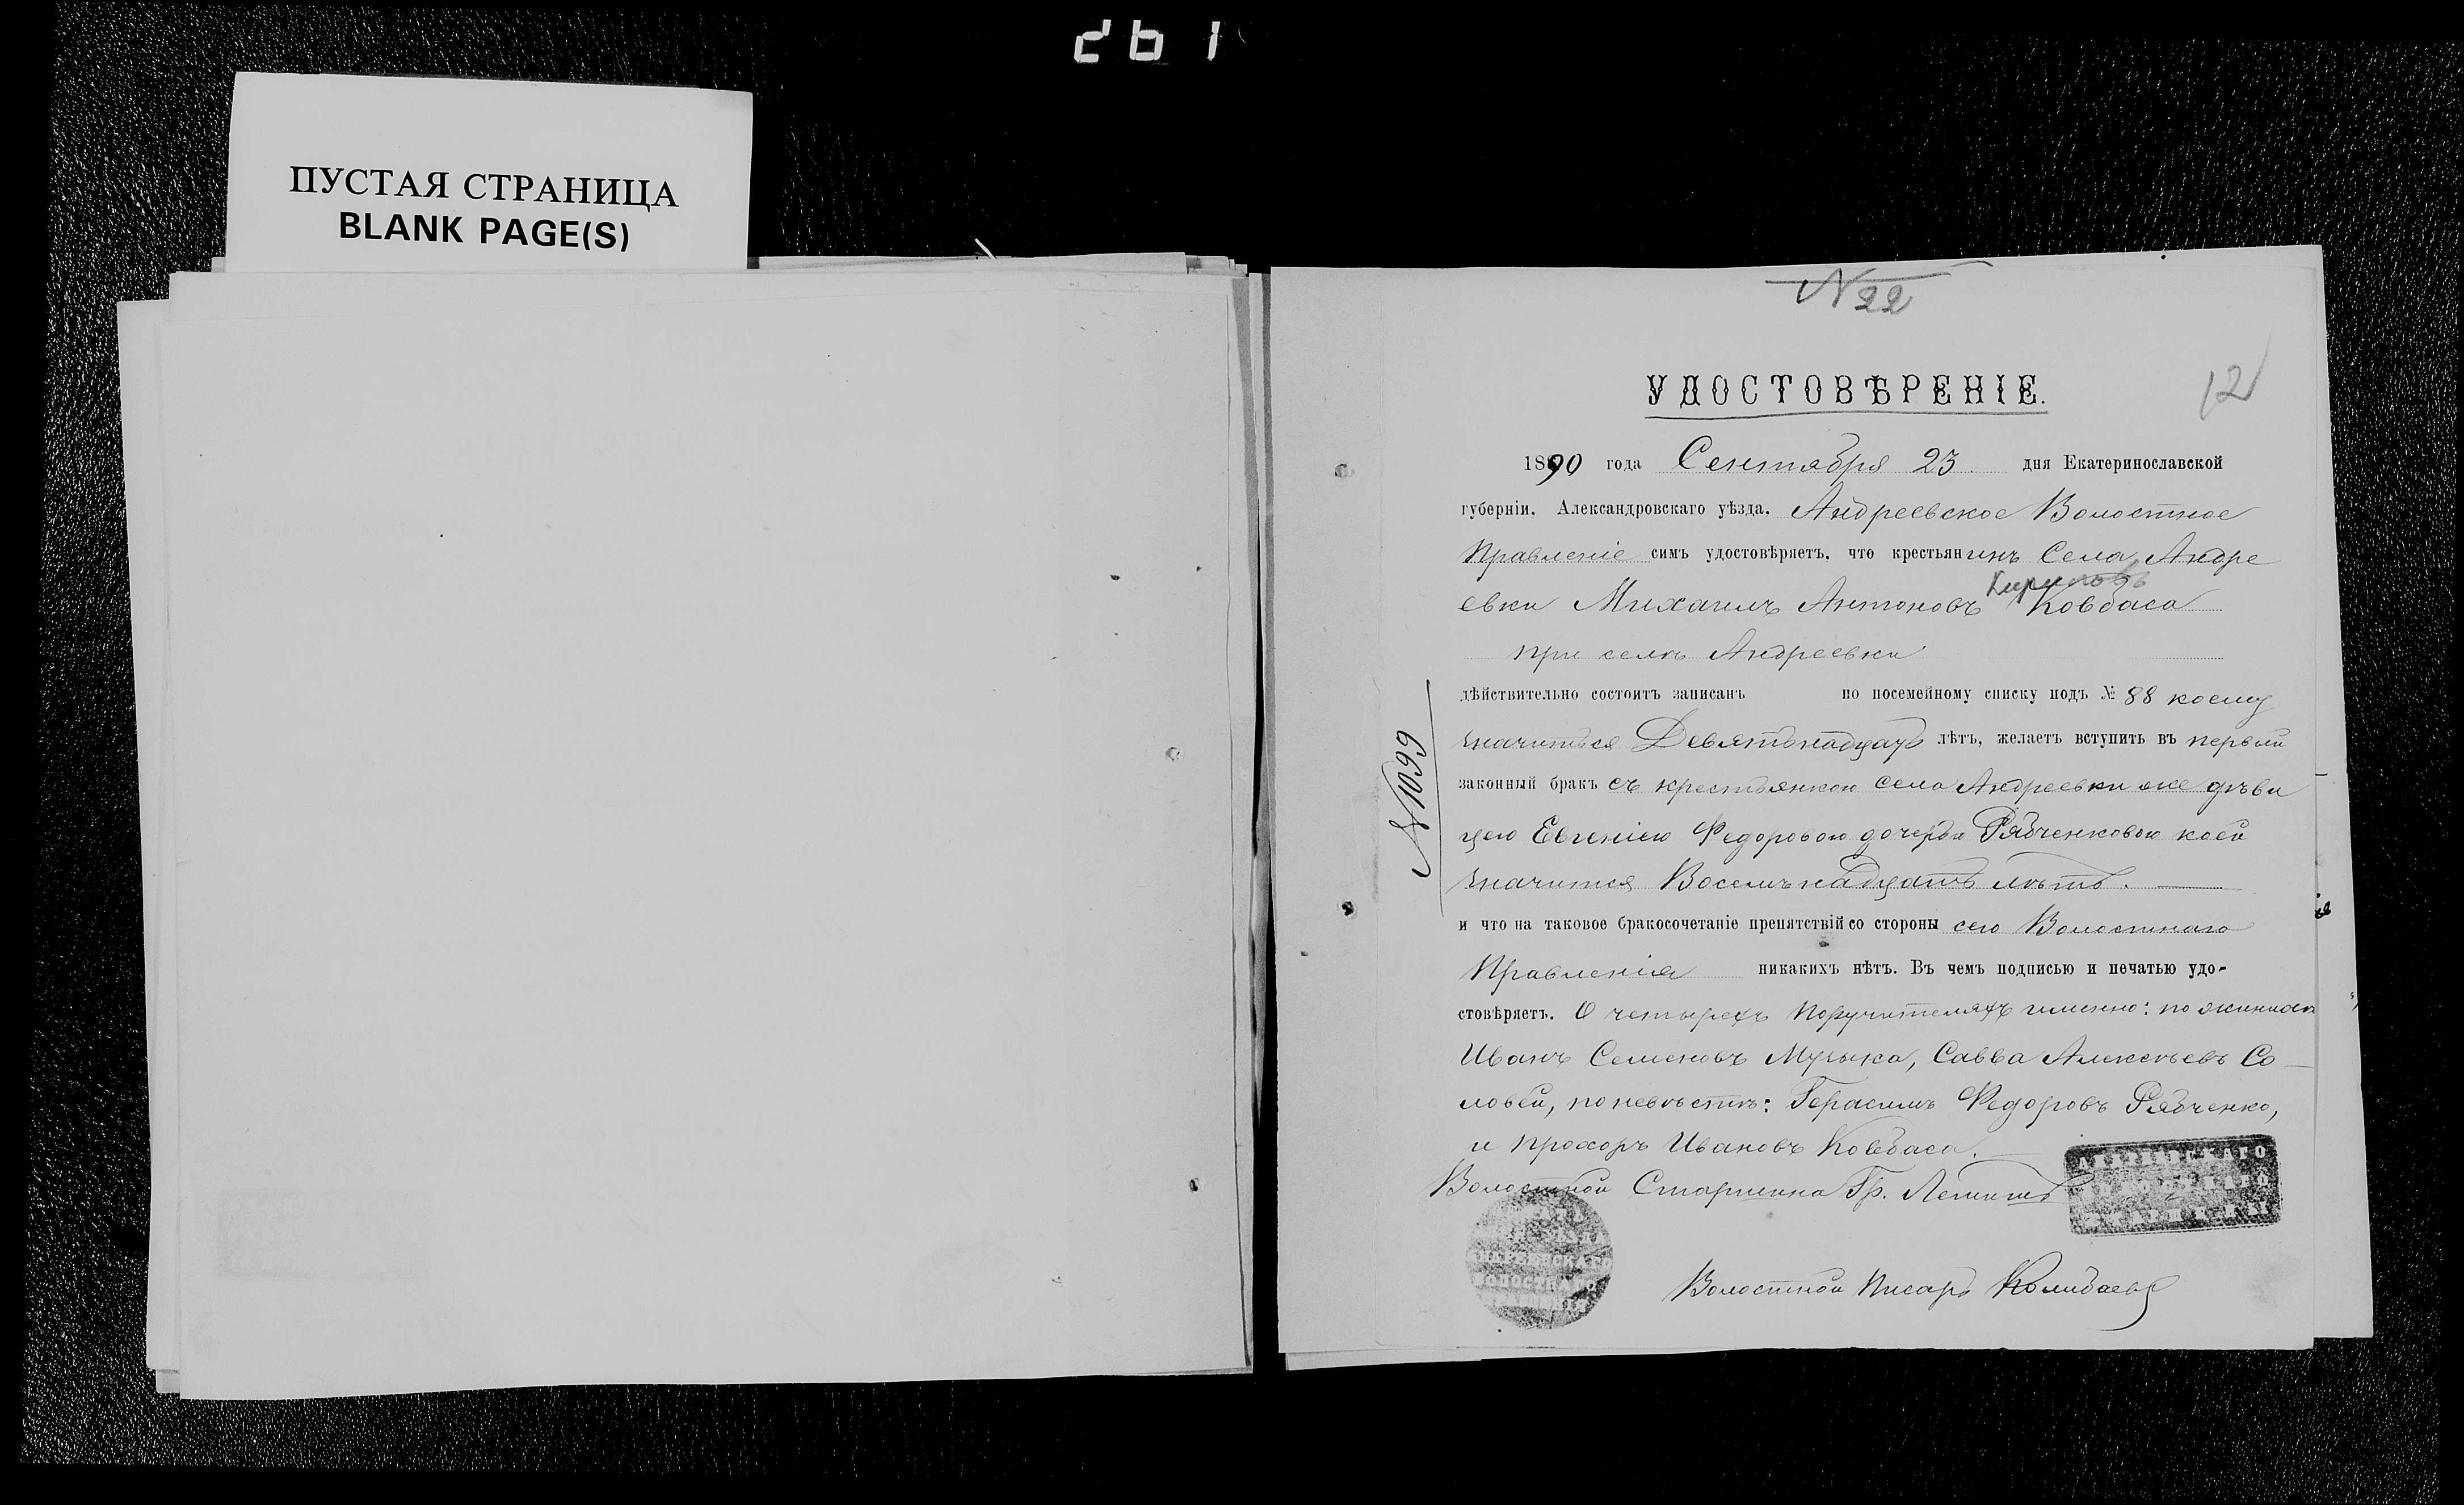 261
ПУСТАЯ СТРАНИЦА
BLANK PAGE(S)
N 22
12
УДОСТОВѢРЕНІЕ.
1890 года Сентября 23. дня Екатеринославской
губерніи, Александровскаго уѣзда, Андреевское Волостное
Правленіе симъ удостовѣряетъ, что крестьянинъ Села Андре
евки Михаилъ Антоновъ Ковбаса
при селѣ Андреевки
дѣйствительно состоитъ записанъ по посемейному списку подъ № 88 коему
значиться Девятьнадцать лѣтъ, желаетъ вступить въ первый
законный бракъ съ крестьянкою села Андреевки же дѣви
цею Евгеніею Федоровою дочерью Рябченковою коей
значится Восемьнадцать лѣтъ.
и что на таковое бракосочетаніе препятствій со стороны сего Волостнаго
Правленія никакихъ нѣтъ. Въ чемъ подписью и печатью удо-
стовѣряетъ. О четырехъ поручителяхъ именно: по женихѣ
Иванъ Семеновъ Музыка, Савва Алексѣевъ Со
ловей, по невѣстѣ: Герасимъ Федоровъ Рябченко,
и Прохоръ Ивановъ Ковбаса.
Волостной Старшина Гр.
Волостной Писарь
N 1099
АНДРЕЕВСКАГО
ВОЛОСТНАГО
СТАРШИНЫ
АНДРЕЕВСКАГО
ВОЛОСТНАГО